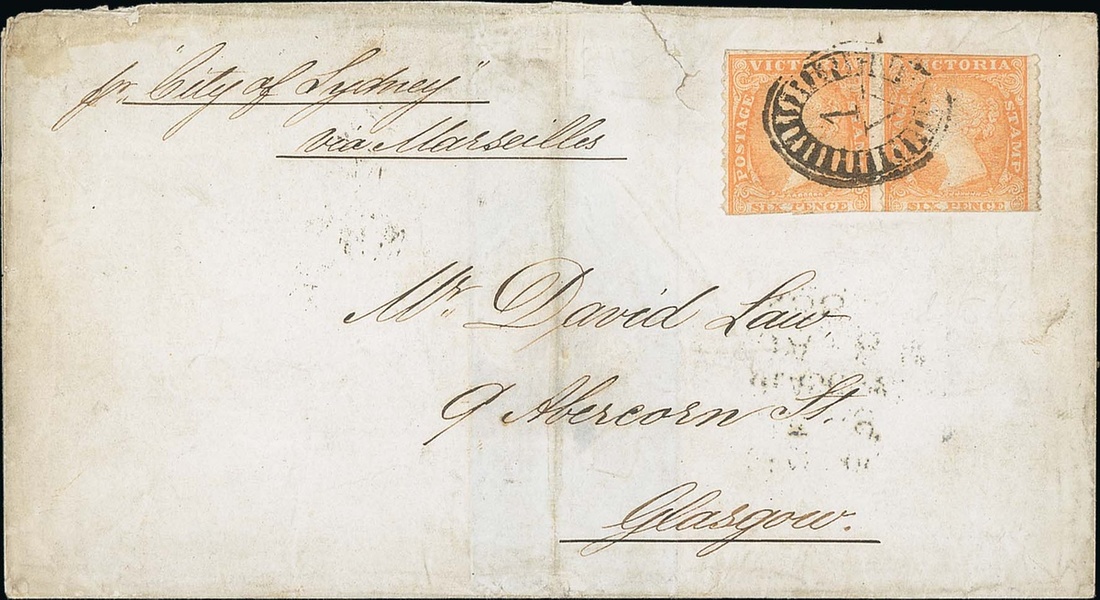 pr. "City of Sydney"
via Marseilles
VICTORIA
POSTAGE
STAMP
SIX PENCE
SIX PENCE
1
V
Mr. David Law,
9 Abercorn St.
Glasgow.